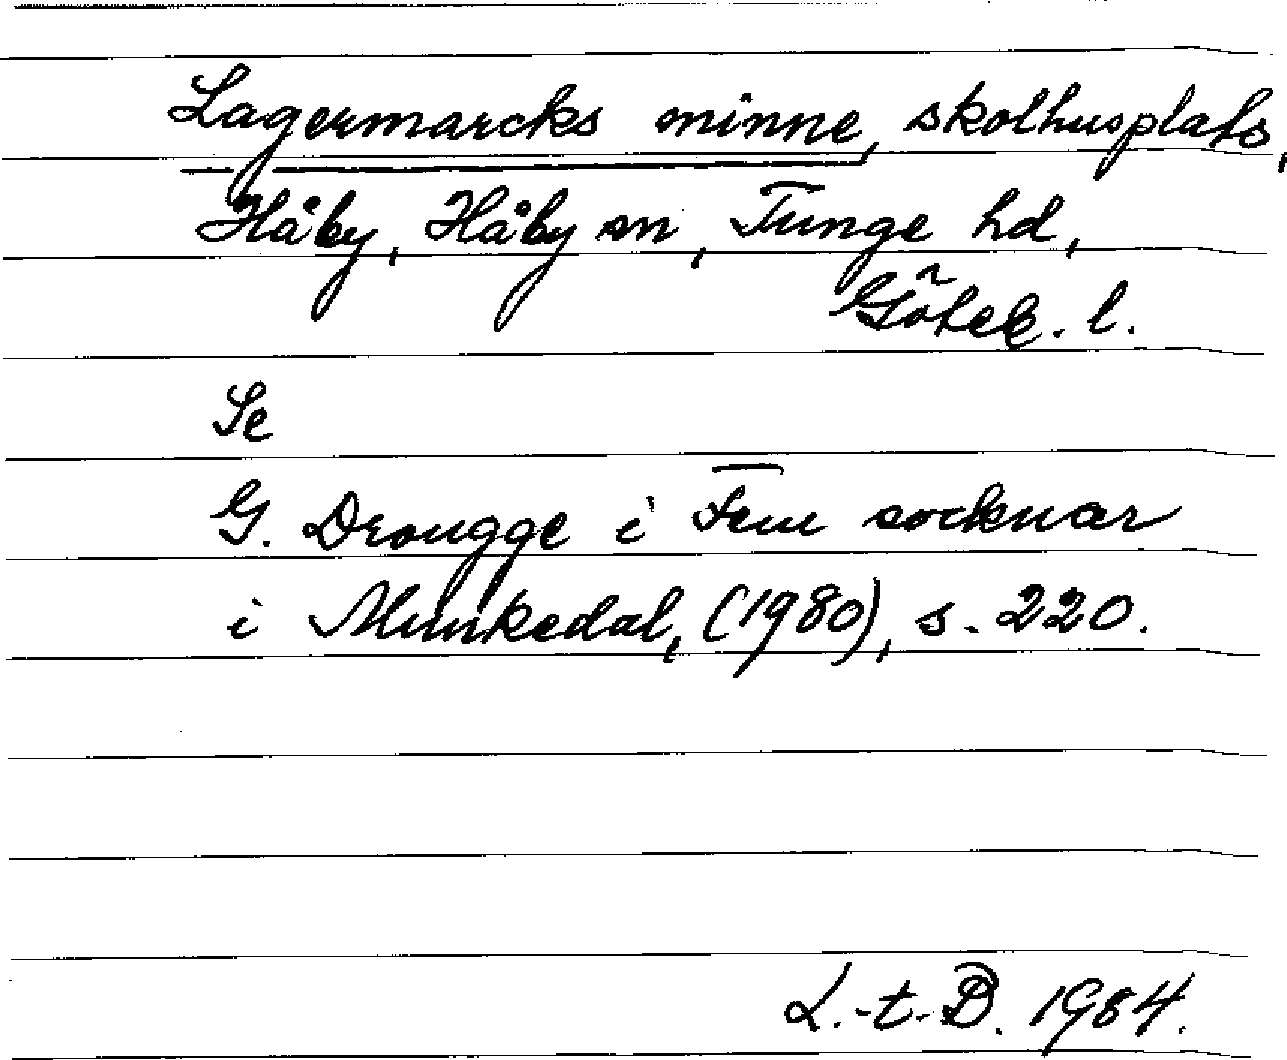 Lagermarcks minne, skolhusplats,
Håby, Håby sn, Tunge hd,
Göteb. l.
Se
G. Drougge i Fem socknar
i Munkedal, (1980), s. 220.
L.-t.-B. 1984.